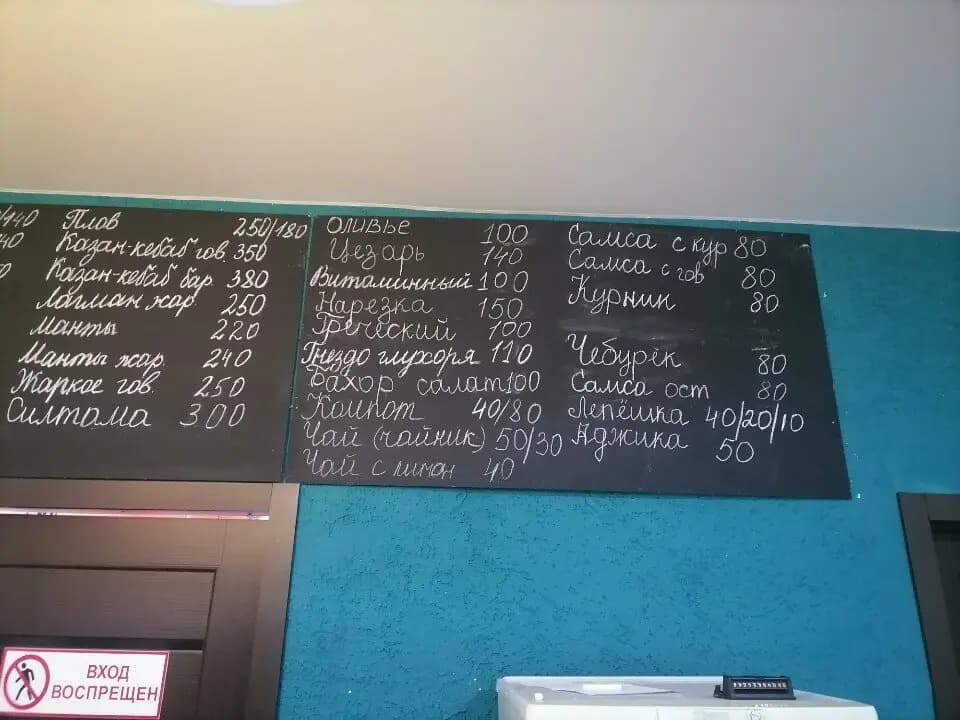 /140
40
0
Плов 250/180
Казан-кебаб гов. 350
Казан-кебаб бар. 380
Лагман жар 250
Манты 220
Манты жар. 240
Жаркое гов. 250
Силтама 300
Оливье 100
Цезарь 140
Витаминный 100
Нарезка 150
Греческий 100
Гнездо глухоря 110
Бахор салат 100
Компот 40/80
Чай (чайник) 50/30
Чай с лимон 40
Самса с кур 80
Самса с гов 80
Курник 80
Чебурек 80
Самса ост 80
Лепёшка 40/20/10
Аджика 50
ВХОД
ВОСПРЕЩЕН